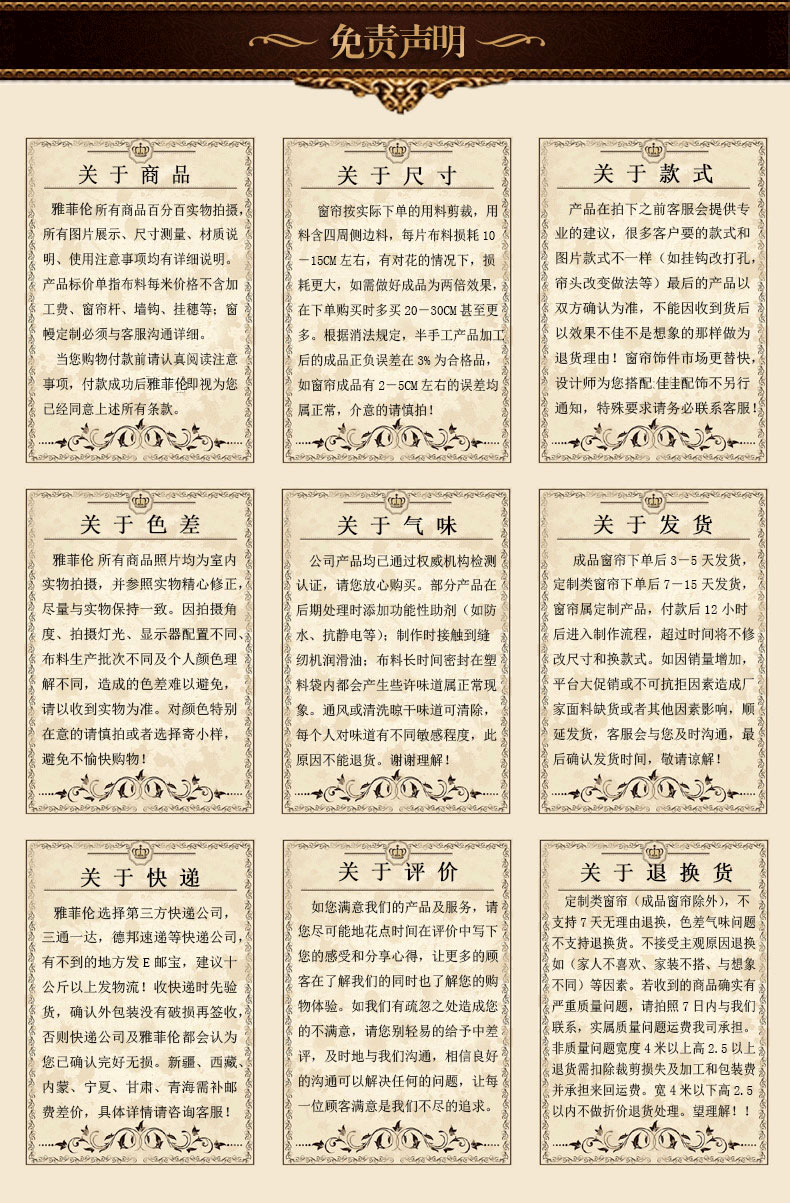 免责声明
关于商品
雅菲伦所有商品百分百实物拍摄，
所有图片展示、尺寸测量、材质说
明、使用注意事项均有详细说明。
产品标价单指布料每米价格不含加
工费、窗帘杆、墙钩、挂穗等；窗
幔定制必须与客服沟通详细。
当您购物付款前请认真阅读注意
事项，付款成功后雅菲伦即视为您
已经同意上述所有条款。
关于尺寸
窗帘按实际下单的用料剪裁，用
料含四周侧边料，每片布料损耗10
－15CM左右，有对花的情况下，损
耗更大，如需做好成品为两倍效果，
在下单购买时多买20－30CM甚至更
多。根据消法规定，半手工产品加工
后的成品正负误差在3%为合格品，
如窗帘成品有2－5CM左右的误差均
属正常，介意的请慎拍！
关于款式
产品在拍下之前客服会提供专
业的建议，很多客户要的款式和
图片款式不一样（如挂钩改打孔，
帘头改变做法等）最后的产品以
双方确认为准，不能因收到货后
以效果不佳不是想象的那样做为
退货理由！窗帘饰件市场更替快，
设计师为您搭配.佳圭配饰不另行
通知，特殊要求请务必联系客服！
关于色差
雅菲伦 所有商品照片均为室内
实物拍摄，并参照实物精心修正，
尽量与实物保持一致。因拍摄角
度、拍摄灯光、显示器配置不同、
布料生产批次不同及个人颜色理
解不同，造成的色差难以避免，
请以收到实物为准。对颜色特别
在意的请慎拍或者选择寄小样，
避免不愉快购物！
关于气味
公司产品均已通过权威机构检测
认证，请您放心购买。部分产品在
后期处理时添加功能性助剂（如防
水、抗静电等）；制作时接触到缝
纫机润滑油；布料长时间密封在塑
料袋内都会产生些许味道属正常现
象。通风或清洗晾干味道可清除，
每个人对味道有不同敏感程度，此
原因不能退货。谢谢理解！
关于发货
成品窗帘下单后3－5天发货，
定制类窗帘下单后7－15天发货，
窗帘属定制产品，付款后12小时
后进入制作流程，超过时间将不修
改尺寸和换款式。如因销量增加，
平台大促销或不可抗拒因素造成厂
家面料缺货或者其他因素影响，顺
延发货，客服会与您及时沟通，最
后确认发货时间，敬请谅解！
关于快递
雅菲伦选择第三方快递公司，
三通一达，德邦速递等快递公司，
有不到的地方发E邮宝，建议十
公斤以上发物流！收快递时先验
货，确认外包装没有破损再签收，
否则快递公司及雅菲伦都会认为
您已确认完好无损。新疆、西藏、
内蒙、宁夏、甘肃、青海需补邮
费差价，具体详情请咨询客服！
关于评价
如您满意我们的产品及服务，请
您尽可能地花点时间在评价中写下
您的感受和分享心得，让更多的顾
客在了解我们的同时也了解您的购
物体验。如我们有疏忽之处造成您
的不满意，请您别轻易的给予中差
评，及时地与我们沟通，相信良好
的沟通可以解决任何的问题，让每
一位顾客满意是我们不尽的追求。
关于退换货
定制类窗帘（成品窗帘除外），不
支持7天无理由退换，色差气味问题
不支持退换货。不接受主观原因退换
如（家人不喜欢、家装不搭、与想象
不同）等因素。若收到的商品确实有
严重质量问题，请拍照7日内与我们
联系，实属质量问题运费我司承担。
非质量问题宽度4米以上高2.5以上
退货需扣除裁剪损失及加工和包装费
并承担来回运费。宽4米以下高2.5
以内不做折价退货处理。望理解！！